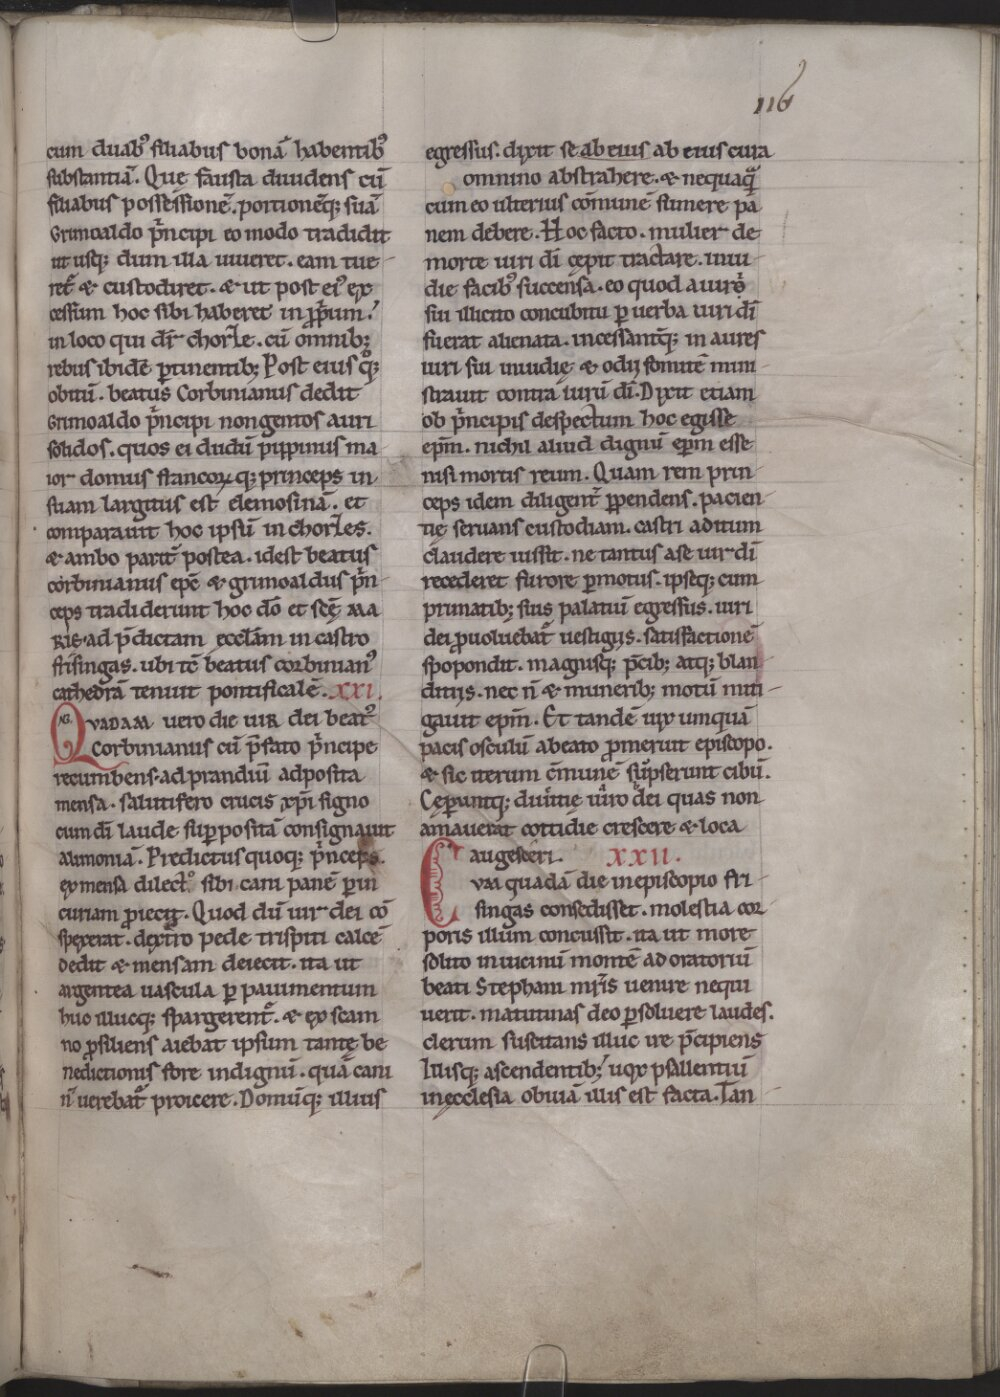 116
cum duab᾿ filiabus bonā habentib᾿
substantiā. Que fausta diuidens cū
filiabus possessionē. portionēq; suā
Grimoaldo p̄ncipi eo modo tradidit
ut usq; dum illa uiueret. eam tue-
ret᾿ & custodiret. & ut post ei᾿ ex
cessum hoc sibi haberet in p̄prium.
in loco qui dr̄ chorłe. cū omnib;
rebus ibidē ꝑtinentib; Post eius q̊q;
obitū. beatus Corbinianus dedit
Grimoaldo p̄ncipi nongentos auri
solidos. quos ei dudū pippinus ma-
ior domus francoꝝ q; princeps in-
suam largitus est elemosinā. et
comparauit hoc ipsū in chorłes.
& ambo parit᾿ postea. idest beatus
corbinianus epc̄ & grimoaldus p̄n-
ceps tradiderunt hoc dō et scē MA
RIE ad p̄dictam ecclām in castro
frisingas. ubi tc̄ beatus corbinian᾿
cathedrā tenuit pontificalē. XXI.
QVADAM uero die uir dei beat᾿
Corbinianus cū p̄fato p̄ncipe
recumbens. ad prandiū adposita
mensa. salutifero crucis xp̄i signo
cum dī laude suꝑpositā consignauit
alimoniā. Predictus quoq; p̄nceps.
ex mensa dilect᾿ sibi cani panē ꝑ in
curiam ꝓiecit. Quod dū uir dei cō
spexerat. dextro pede trispiti calcē
dedit & mensam deiecit. ita ut
argentea uascula ꝑ pauimentum
huc illucq; spargerent᾿. & ex scam
no ꝓsiliens aiebat ipsum tantę be
nedictionis fore indignū. quā cani
n̄ uerebat᾿ proicere. Domūq; illius
egressus. dixit se ab eius ab eius cura
omnino abstrahere. & nequaq̄
cum eo ulterius cōmunē sumere pa-
nem debere. Hoc facto. mulier de
morte uiri dī cępit tractare. inui-
die facib᾿ succensa. eo quod a uiro
sui illicito concubitu ꝑ uerba uiri dī
fuerat alienata. incessantq; in aures
uiri sui inuidię & odij fomitē mini-
strauit contra uirū dī. Dixit etiam
ob p̄ncipis despectum hoc egisse
epm̄. nichil aliud dignū epm̄ esse
nisi mortis reum. Quam rem prin-
ceps idem diligent᾿ ꝑpendens. pacien-
tię seruans custodiam. castri aditum
claudere iussit. ne tantus a se uir dī
recederet furore ꝑmotus. ipseq; cum
primatib; suis palatiū egressus. uiri
dei ꝓuoluebat᾿ uestigijs. satisfactionē
spopondit. magnisq; p̄cib; atq; blan
ditijs. nec n̄ & munerib; motū miti-
gauit epm̄. Et tandē uix umquā
pacis osculū a beato ꝓmeruit episcopo.
& sic iterum cōmunē sūpserunt cibū.
Cęperuntq; diuitię uiro dei quas non
amauerat cottidie crescere & loca
augesceri. XXII.
CVM quadā die in episcopio fri-
singas consedisset. molestia cor-
poris illum concussit. ita ut more
solito in uicinū montē ad oratoriū
beati Stephani mr̄is uenire nequi
uerit. matutinas deo ꝑsoluere laudes.
clerum suscitans illuc ire p̄cipiens
Illisq; ascendentib; uox psallentiū
in ęcclesia obuiā illis est facta. Tan-